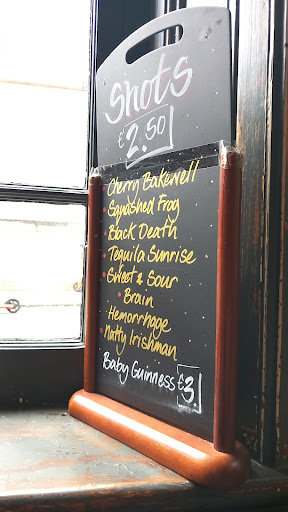 Shots
£2.50
Cherry Bakewell
Squashed Frog
Black Death
Tequila Sunrise
Sweet & Sour
Brain
Hemorrhage
Natty Irishman
Baby Guinness £3.